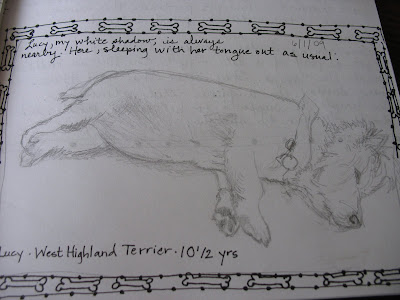 Lucy, my white shadow, is always
nearby. Here, sleeping with her tongue out as usual.
6/1/09
Lucy · West Highland Terrier · 10 1/2 yrs